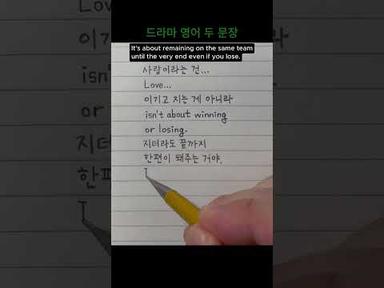 드라마 영어 두 문장
It's about remaining on the same team
until the very end even if you lose.
사랑이라는 건...
Love...
이기고 지는 게 아니라
isn't about winning
or losing.
지더라도 끝까지
한편이 돼주는 거야.
I